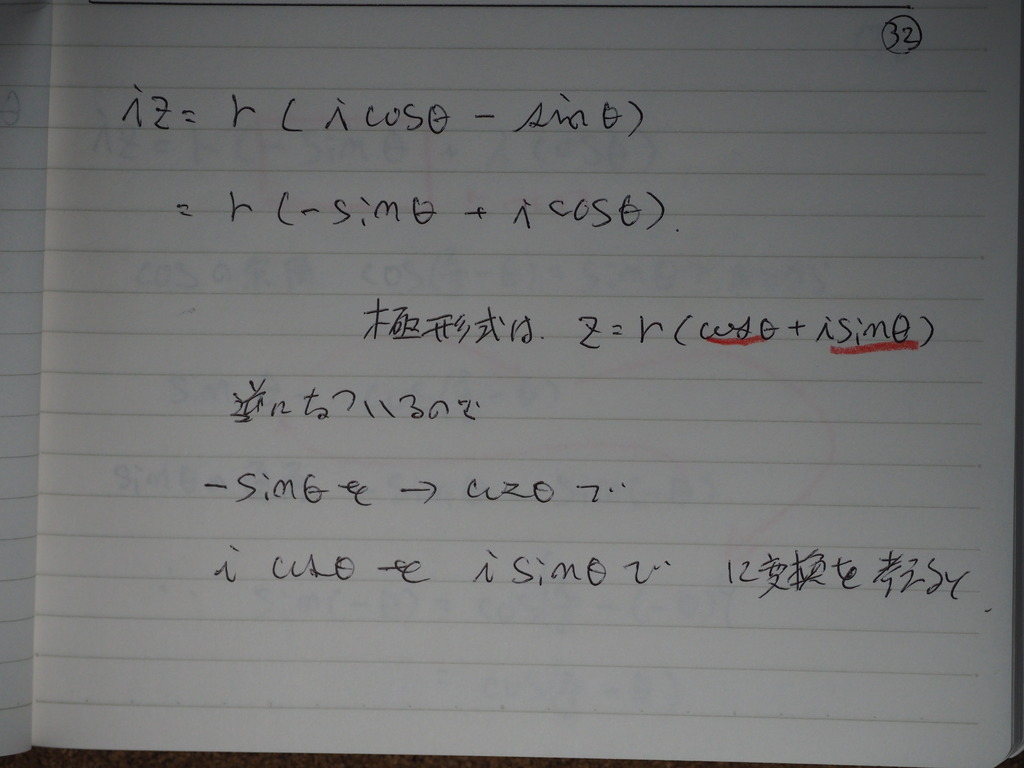 32
iz = r (i cosθ - sinθ)
= r (-sinθ + i cosθ).
極形式は. z = r (cosθ + i sinθ)
逆になっているので
-sinθを → cosθで
i cosθを i sinθで に変換を考えると.